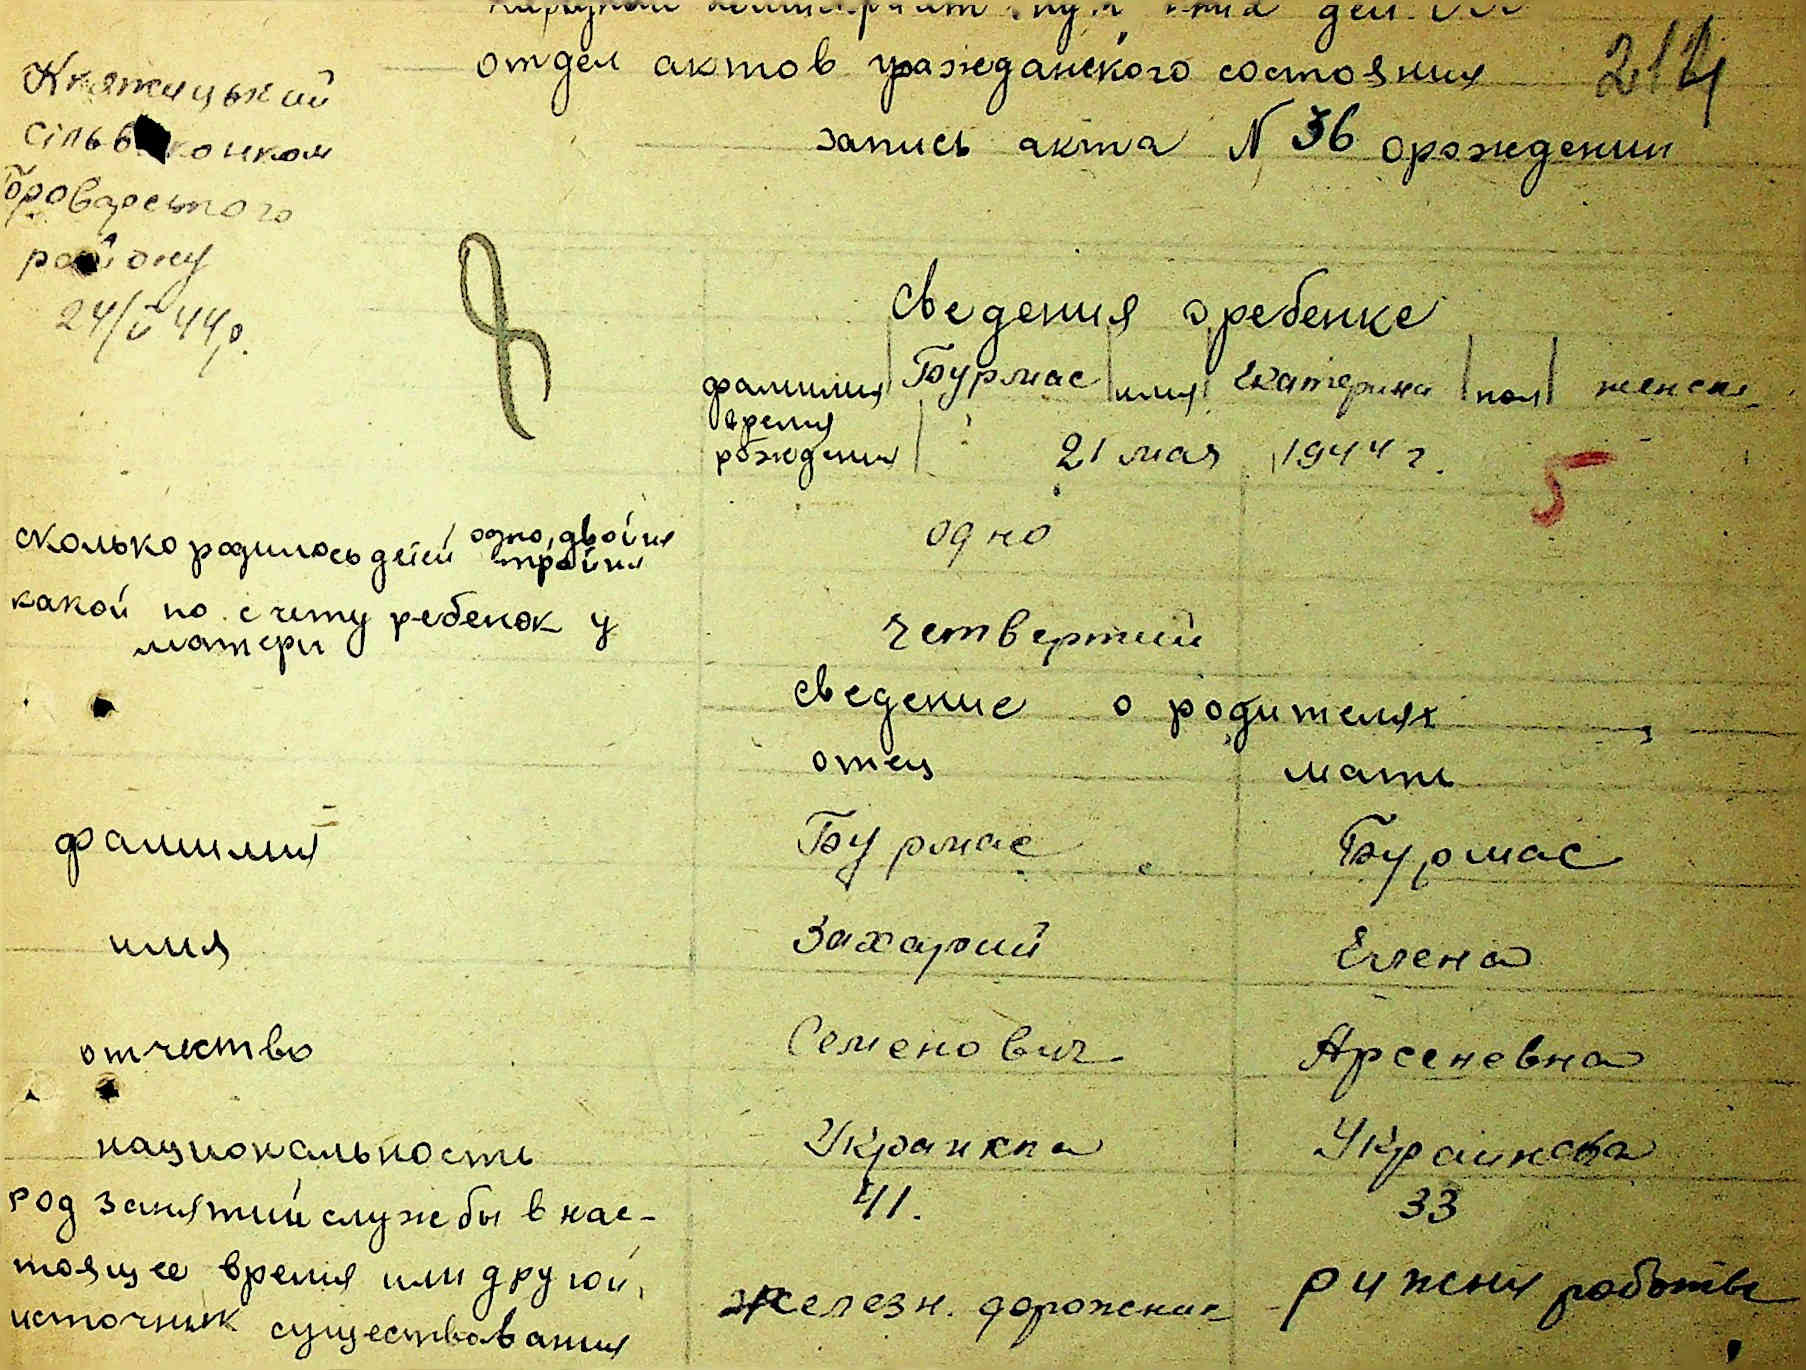 отдел актов гражданского состояния
214
запись акта N 36 о рождении
Княжицький
сільвиконком
Броварського
району
24/V 44 р.
сведения о ребенке
фамилия Бурмас имя Екатерина пол женск
время
рождения 21 мая 1944 г.
5
сколько родилось детей одно, двойня
тройня
одно
какой по счету ребенок у
матери
четвертий
сведение о родителях
отец мать
фамилия Бурмас Бурмас
имя Захарий Елена
отчество Семенович Арсеневна
национальность Украинка Украинска
41. 33
род занятий службы в нас-
тоящее время или другой
источник существования
железн. дорожник рижни работы